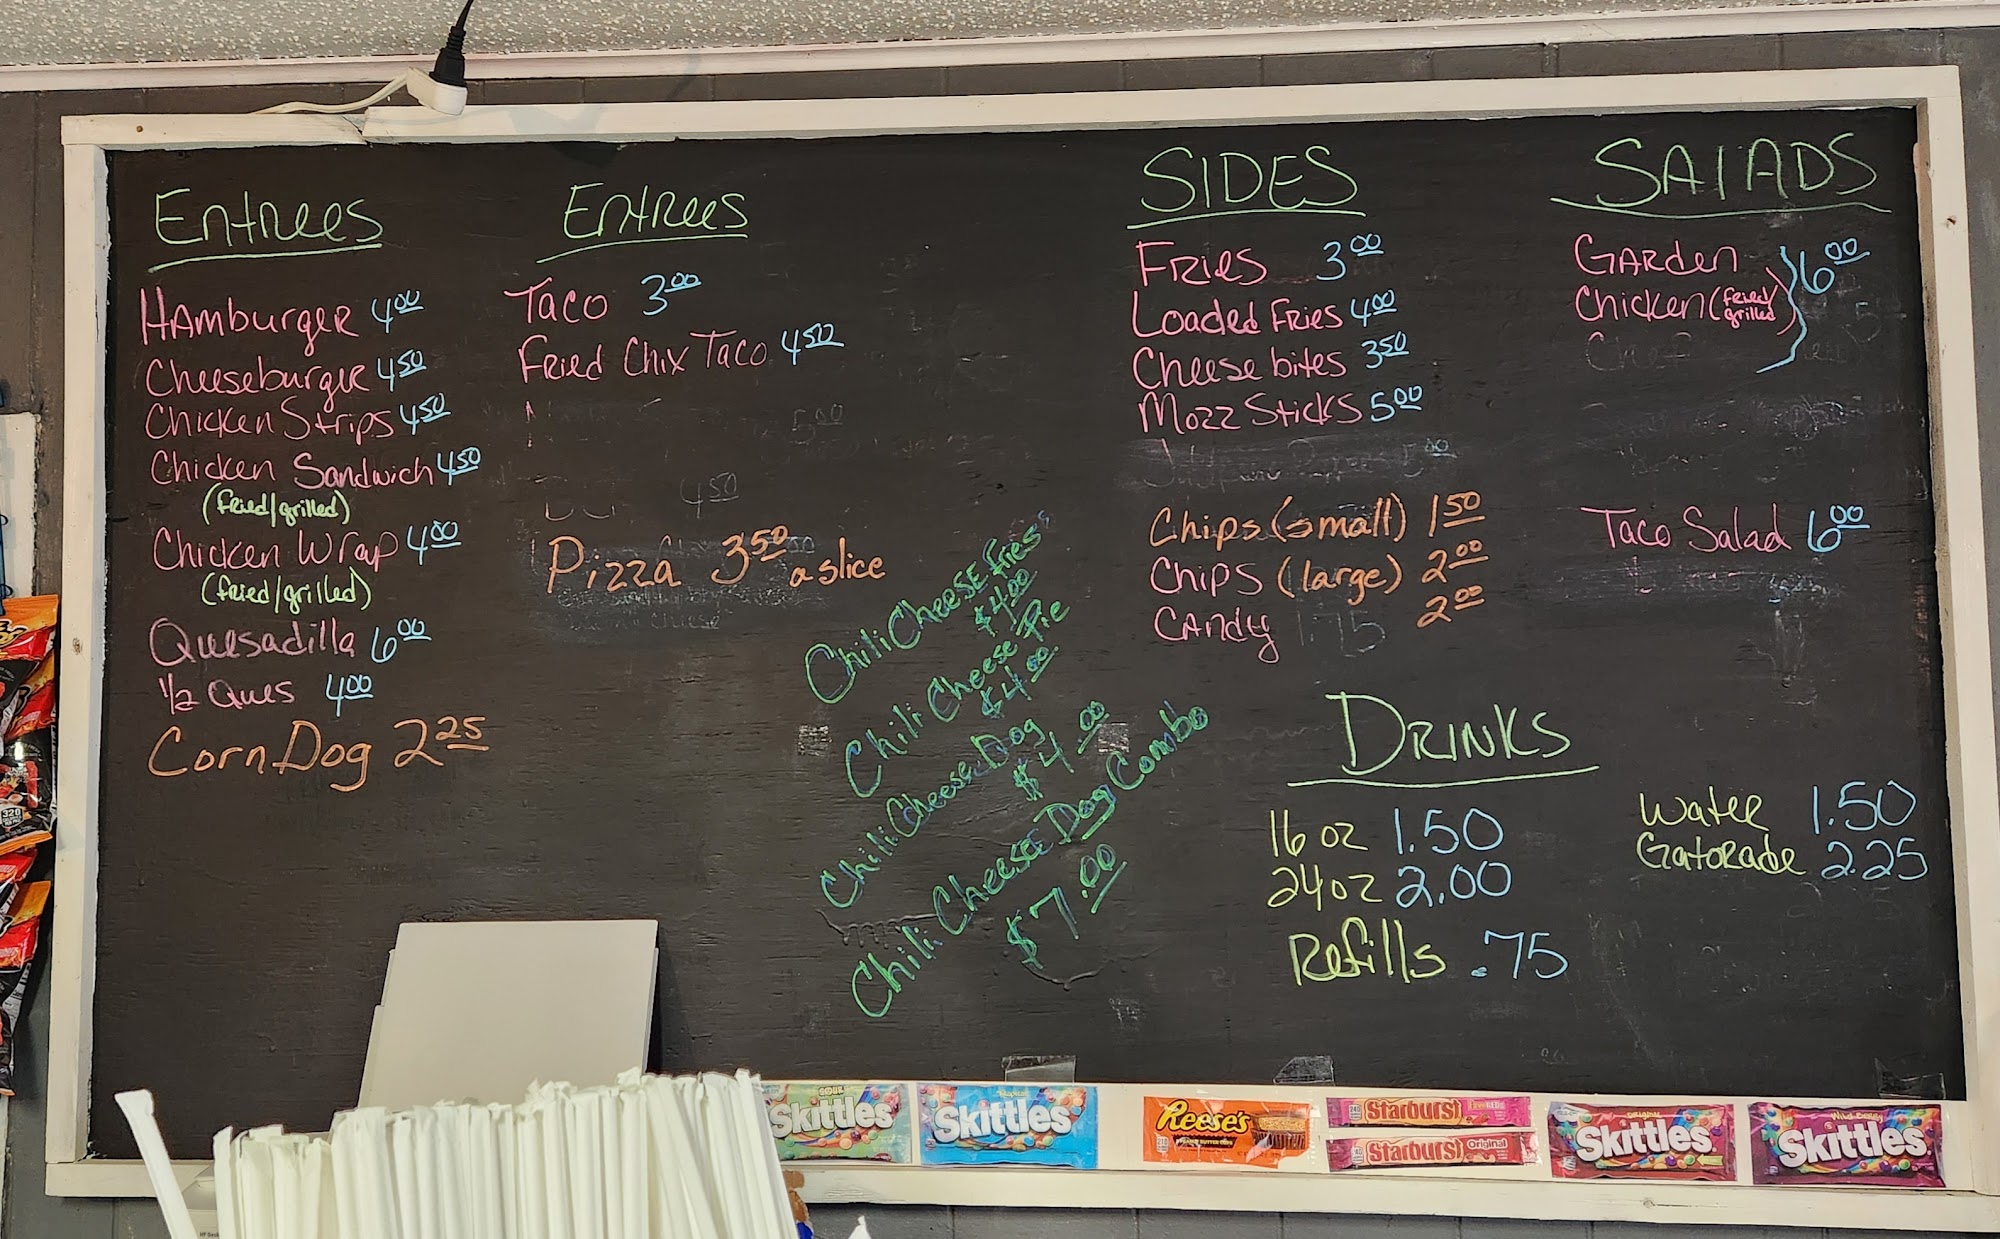 Entrees
Hamburger 4.00
Cheeseburger 4.50
Chicken Strips 4.50
Chicken Sandwich 4.50
(fried/grilled)
Chicken Wrap 4.00
(fried/grilled)
Quesadilla 6.00
1/2 Ques 4.00
Corn Dog 2.25
Entrees
Taco 3.00
Fried Chix Taco 4.50
5.00
4.50
Pizza 3.50 a slice
Chili Cheese Fries
$4.00
Chili Cheese Pie
$4.00
Chili Cheese Dog
$4.00
Chili Cheese Dog Combo
$7.00
SIDES
Fries 3.00
Loaded Fries 4.00
Cheese bites 3.50
Mozz Sticks 5.00
Chips (small) 1.50
Chips (large) 2.00
Candy 1.75 2.00
SALADS
Garden 6.00
Chicken (fried/
grilled)
Chef
Taco Salad 6.00
DRINKS
16 oz 1.50
24 oz 2.00
Refills .75
Water 1.50
Gatorade 2.25
SOUR
Skittles
Tropical
Skittles
Reese's
PEANUT BUTTER CUPS
Starburst FaveREDS
Starburst Original
Original
Skittles
Wild Berry
Skittles
320